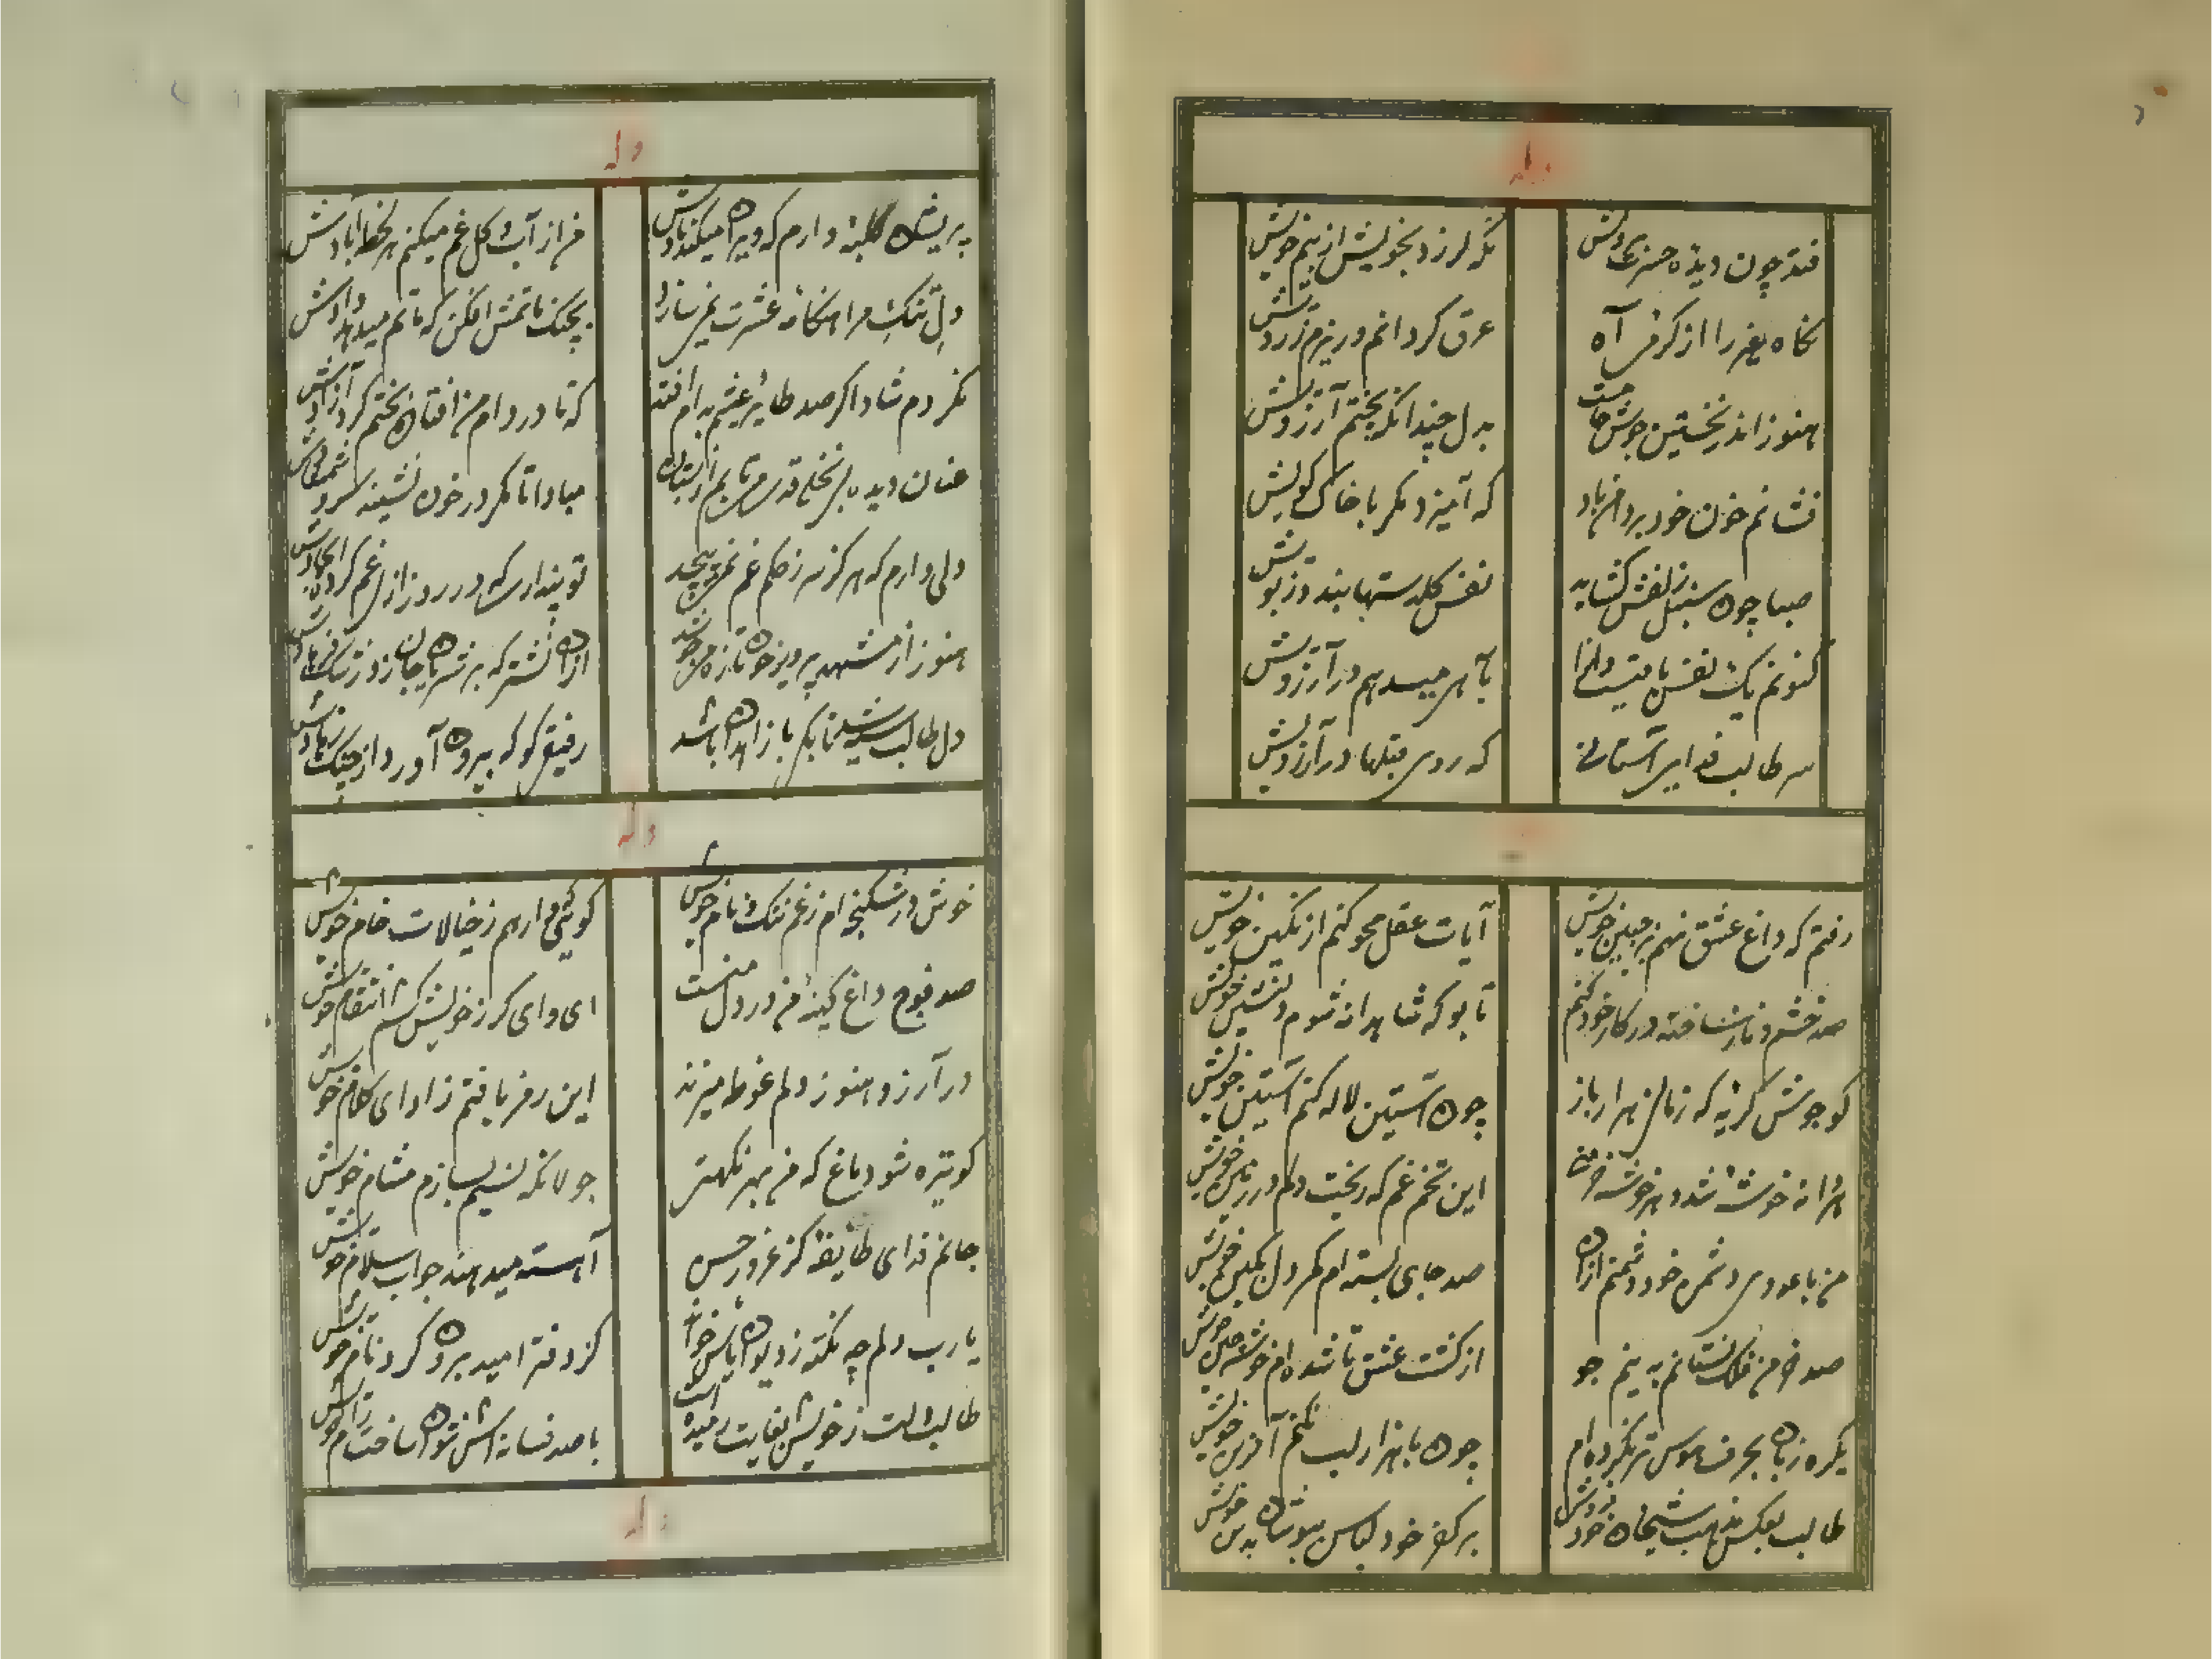 وله
فتد چون دیده حسرت
نگه لرزد بخویش از بیم خویش
نگاه را از گرمی آه
عرق گردانم و ریزم
هنوز اندر نخستین جوش
به دل چندانکه بختم آرزویش
فشانم خون خود بر دامن باد
که آمیزد مگر با خاک کویش
صبا چون سنبل زلفش گشاید
نفس گلدستها بندد ز بویش
کنونم یک نفس باقیست وانرا
بآهی میدهم در آرزویش
سر طالب فدای آستانی
که روی قبلها در آرزویش
رفتم که داغ عشق نهم بر جبین خویش
آیات عقل محو کنم از نگین خویش
صد خشم و ناز ساخته در کار خود کنم
تا بو که شاهدانه شوم دلنشین خویش
کو جوش گریه که زمانی هزار باز
چون آستین لاله کنم آستین خویش
هر دانه خوشه شد و هر خوشه خرمنی
این تخم غم که ریخت دلم در زمین خویش
من با عدوی دشمن خود دشمنم ازان
صد جای بسته ام کمر دل بکین خویش
صد خرمن فلک نستانم به نیم جو
از کشت عشق تا شده ام خوشه چین خویش
یکره زبان بحرف هوس تر نکرده ام
چون با هزار لب نکنم آفرین خویش
طالب بعکس مذهب شیخان خود فروش
بر کفر خود لباس بپوشان بدین خویش
وله
پریشان کلبه دارم که ویران میکند بادش
من از آب و گل غم میکنم هر لحظه آبادش
دل تنگ مرا هنگامه عشرت نمی سازد
بچنگ ماتمش افکن که ماتم میدهد دادش
نکردم شاد اگر صد طایر عیشم به دام افتد
که تا در دام من افتاد بختم کرد آزادش
عنان دیده بر نخل قدت می تابم از بستان
مبادا تا کمر در خون نشیند سرو و شمشادش
دلی دارم که هرگز سر ز حکم غم نمی پیچد
تو پنداری که در روز ازل غم کرده ایجادش
هنوز از مشهد پرویز خون تازه می جوشد
ازان نشتر که بر شریان جان زد رشک فرهادش
دل طالب بشد شیدا
رفیقی کو که بیرون آورد از چنگ
وله
خوش در شکنجه ام ز غم ننگ و نام خویش
کو پختگی وارهم ز خیالات خام خویش
صد فوج داغ کینه من در دل منست
ای وای گر ز خویش کشم انتقام خویش
در آرزو هنوز دلم غوطه میزند
این رمز یافتم ز ادای کلام خویش
کو تیره شو دماغ که من بهر نکهتی
جولانگه نسیم بسازم مشام خویش
جانم فدای طایفه کز غرور حسن
آهسته میدهند جواب سلام خویش
یارب دلم چه نکته ز دیوان یاس خواند
کز دفتر امید برون کرد نام خویش
طالب دلت ز خویش بغایت رمیده است
با صد فسانه اش نتوان ساخت رام خویش
وله